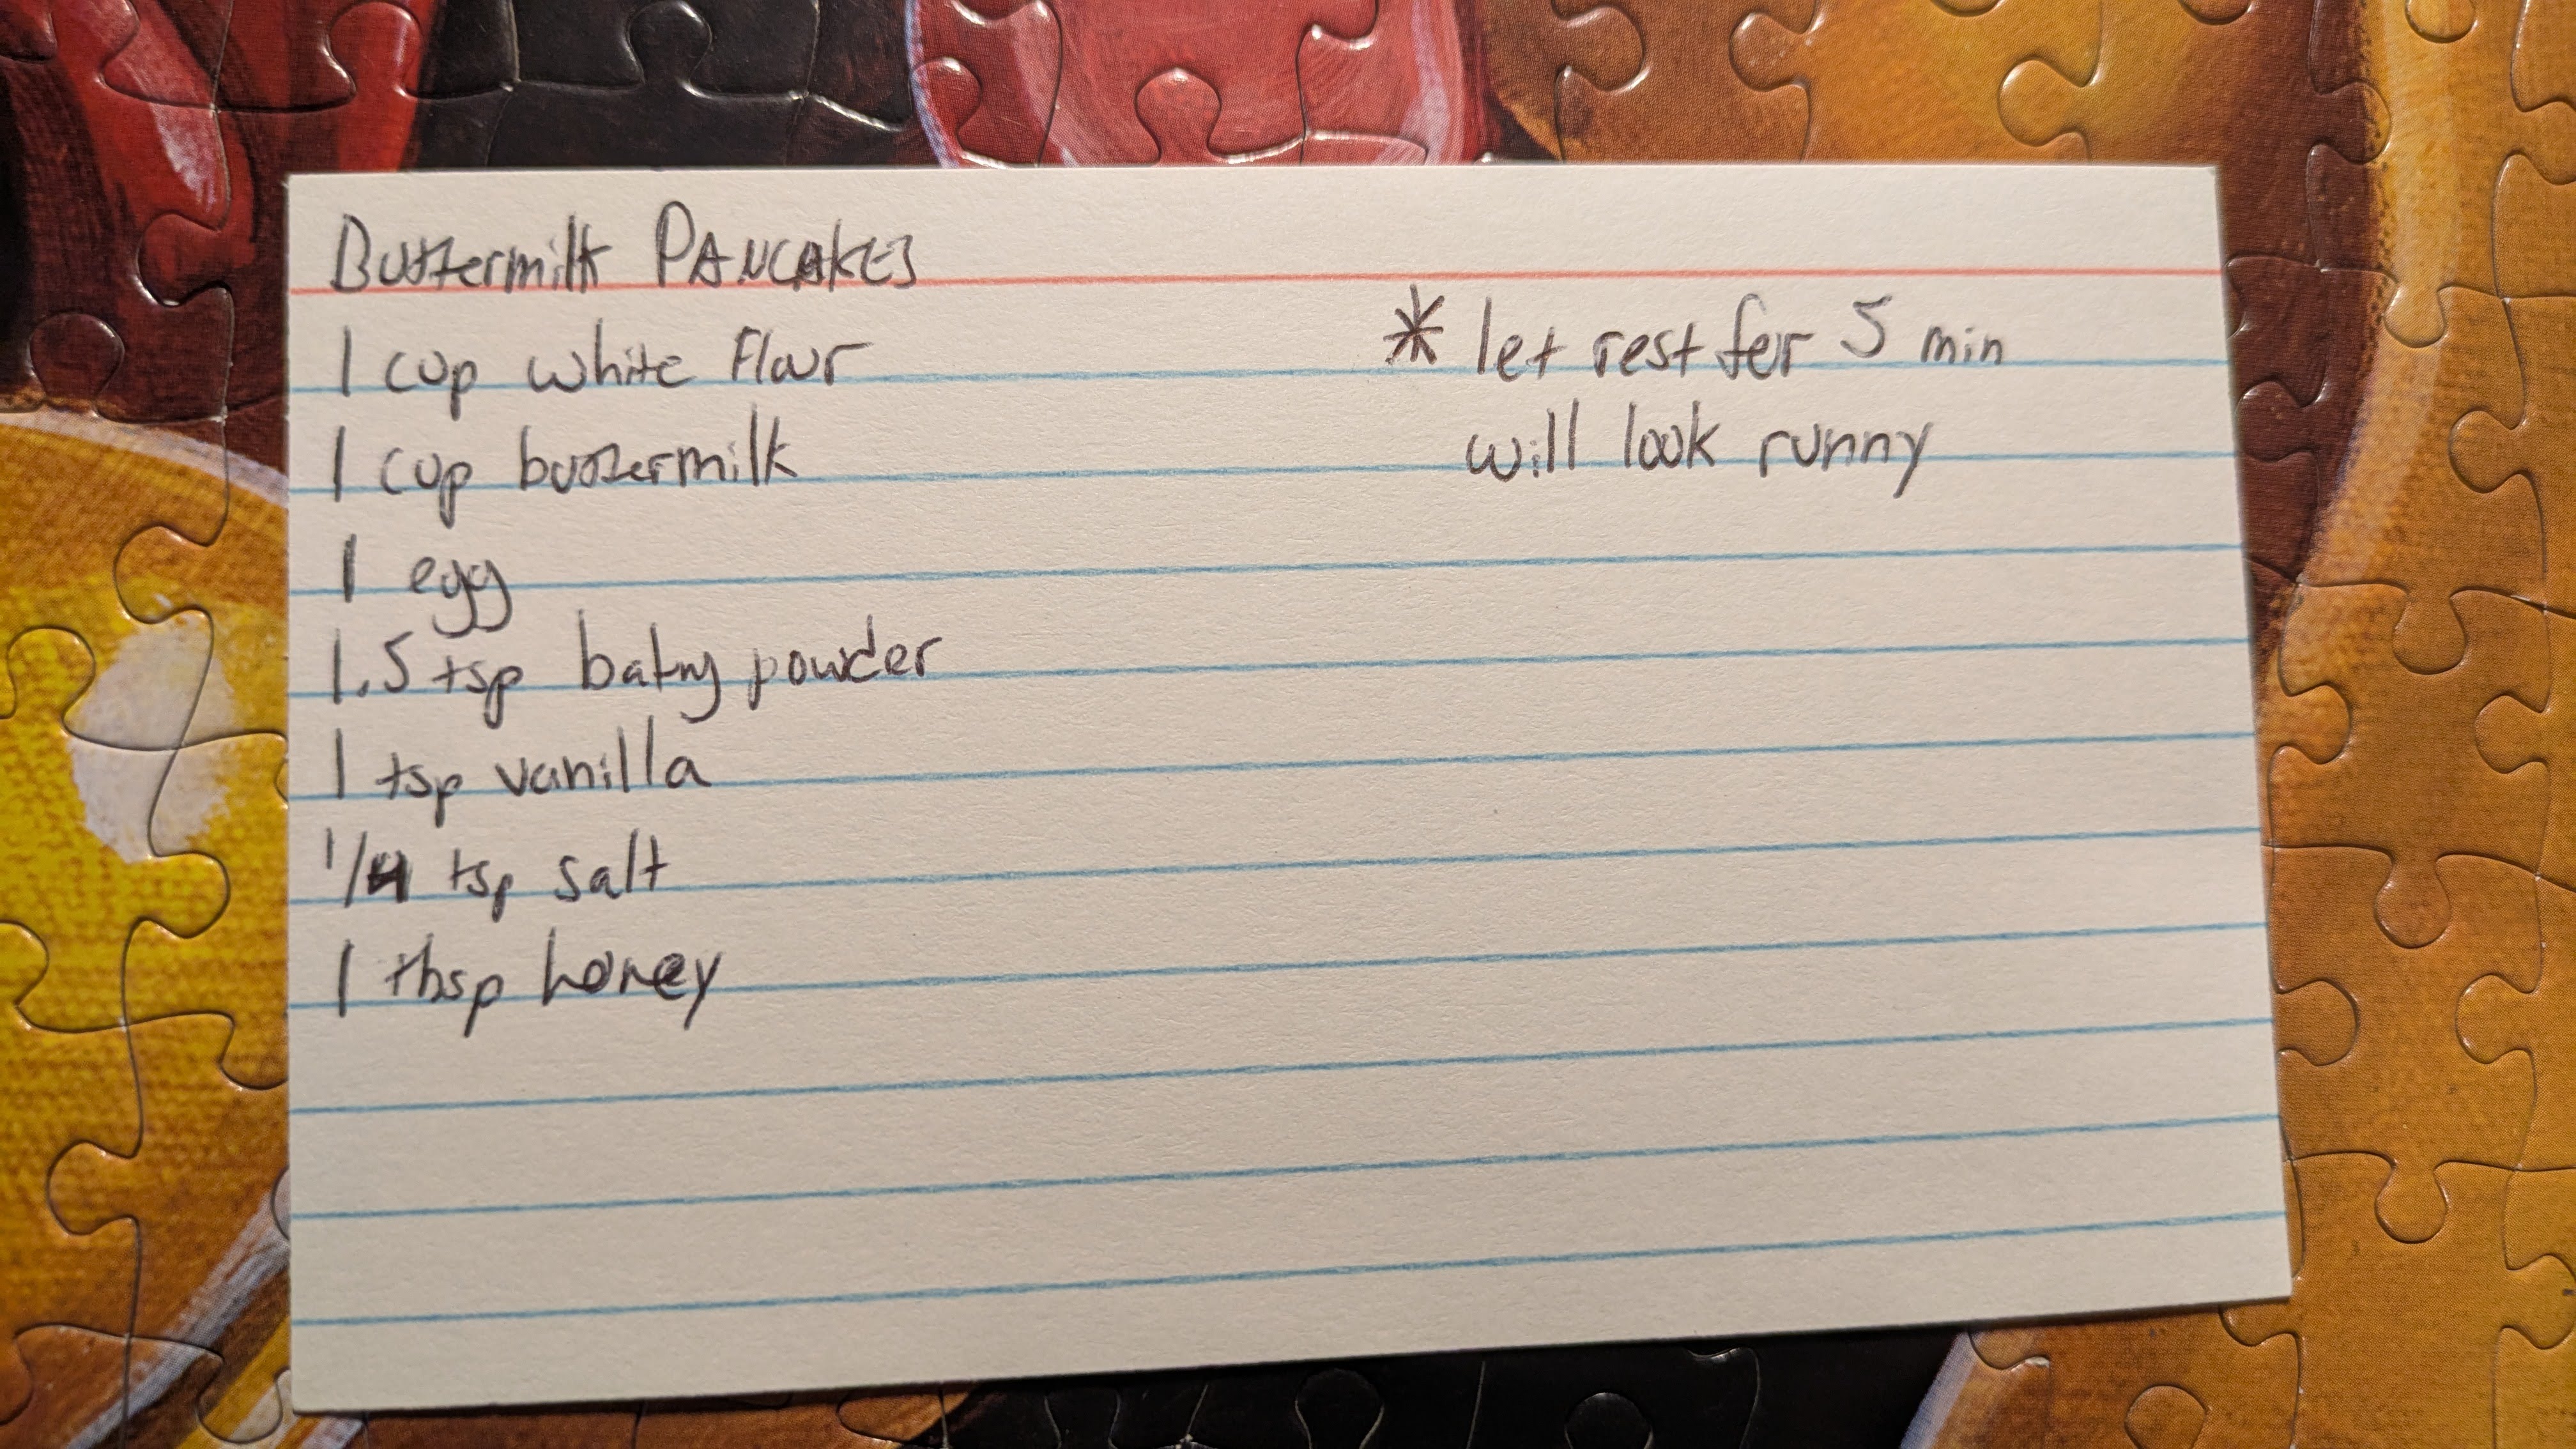 Buttermilk PANCAKES
1 cup white Flour
1 cup buttermilk
1 egg
1.5 tsp baking powder
1 tsp vanilla
1/4 tsp salt
1 tbsp honey
* let rest for 5 min
will look runny